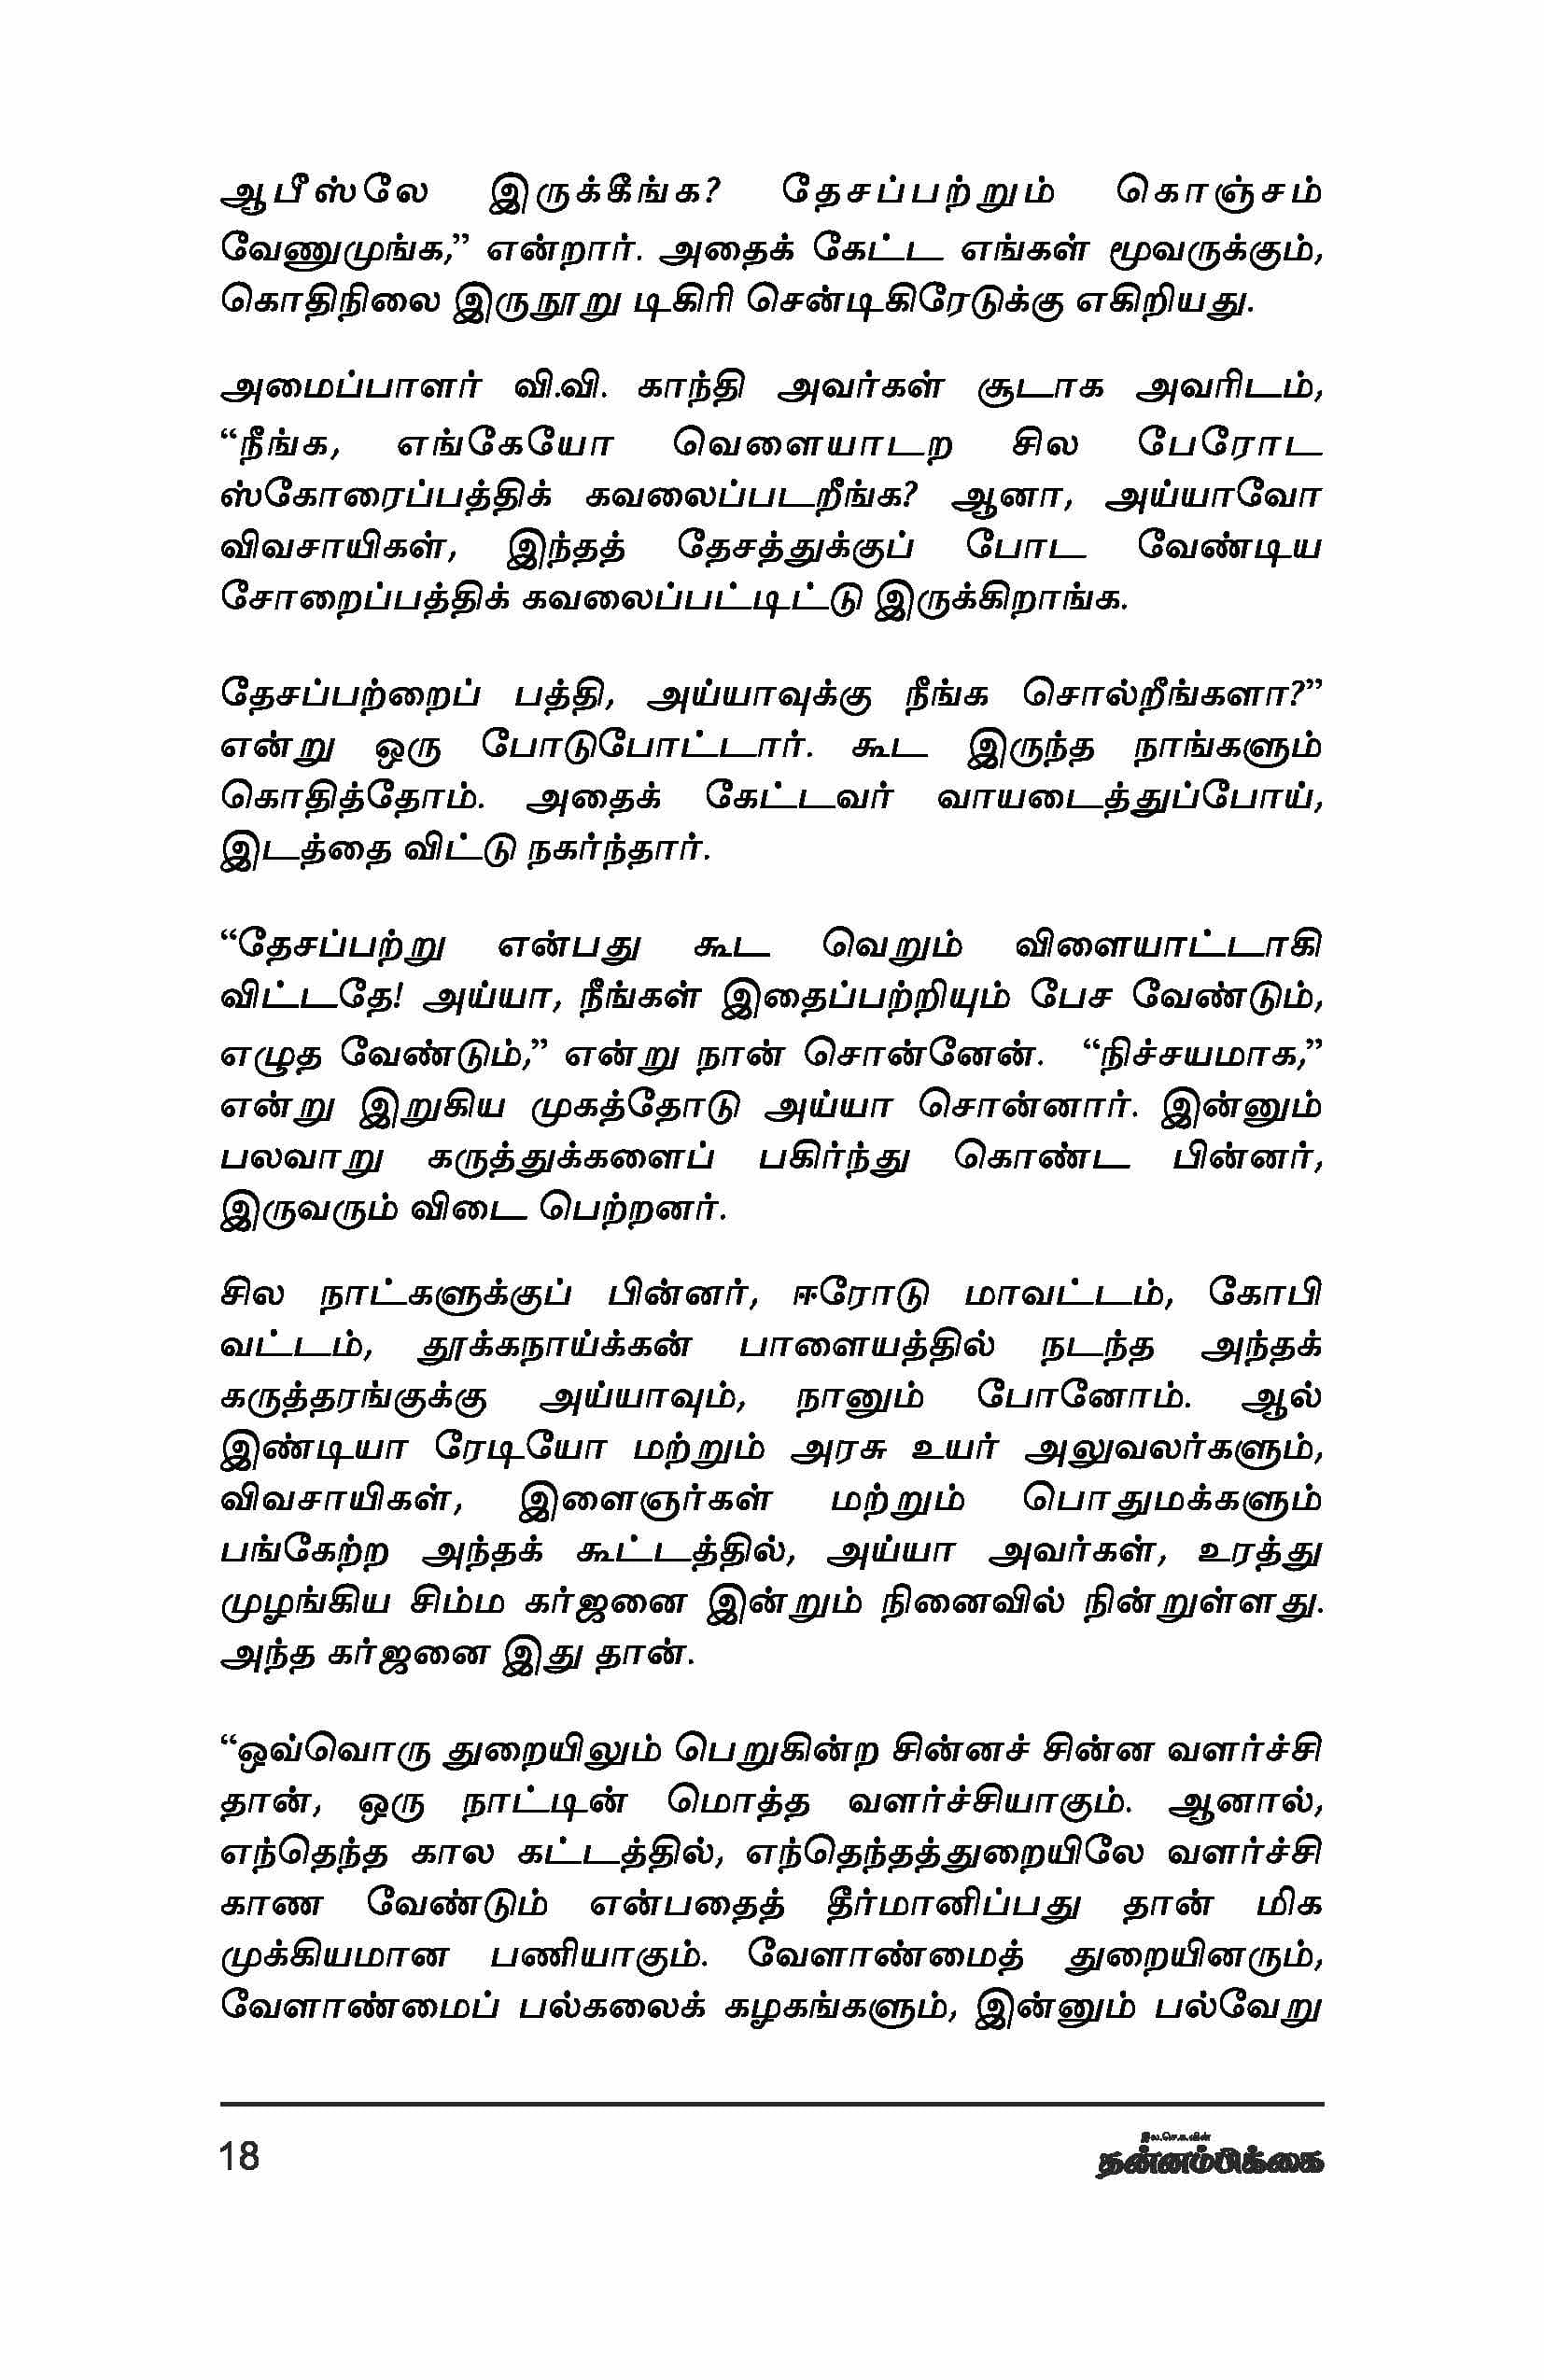 ஆபீஸ்லே இருக்கீங்க? தேசப்பற்றும் கொஞ்சம்
வேணுமுங்க,” என்றார். அதைக் கேட்ட எங்கள் மூவருக்கும்,
கொதிநிலை இருநூறு டிகிரி சென்டிகிரேடுக்கு எகிறியது.
அமைப்பாளர் வி.வி. காந்தி அவர்கள் சூடாக அவரிடம்,
“நீங்க, எங்கேயோ வெளையாடற சில பேரோட
ஸ்கோரைப்பத்திக் கவலைப்படறீங்க? ஆனா, அய்யாவோ
விவசாயிகள், இந்தத் தேசத்துக்குப் போட வேண்டிய
சோறைப்பத்திக் கவலைப்பட்டிட்டு இருக்கிறாங்க.
தேசப்பற்றைப் பத்தி, அய்யாவுக்கு நீங்க சொல்றீங்களா?”
என்று ஒரு போடுபோட்டார். கூட இருந்த நாங்களும்
கொதித்தோம். அதைக் கேட்டவர் வாயடைத்துப்போய்,
இடத்தை விட்டு நகர்ந்தார்.
“தேசப்பற்று என்பது கூட வெறும் விளையாட்டாகி
விட்டதே! அய்யா, நீங்கள் இதைப்பற்றியும் பேச வேண்டும்,
எழுத வேண்டும்,” என்று நான் சொன்னேன். “நிச்சயமாக,”
என்று இறுகிய முகத்தோடு அய்யா சொன்னார். இன்னும்
பலவாறு கருத்துக்களைப் பகிர்ந்து கொண்ட பின்னர்,
இருவரும் விடை பெற்றனர்.
சில நாட்களுக்குப் பின்னர், ஈரோடு மாவட்டம், கோபி
வட்டம், தூக்கநாய்க்கன் பாளையத்தில் நடந்த அந்தக்
கருத்தரங்குக்கு அய்யாவும், நானும் போனோம். ஆல்
இண்டியா ரேடியோ மற்றும் அரசு உயர் அலுவலர்களும்,
விவசாயிகள், இளைஞர்கள் மற்றும் பொதுமக்களும்
பங்கேற்ற அந்தக் கூட்டத்தில், அய்யா அவர்கள், உரத்து
முழங்கிய சிம்ம கர்ஜனை இன்றும் நினைவில் நின்றுள்ளது.
அந்த கர்ஜனை இது தான்.
“ஒவ்வொரு துறையிலும் பெறுகின்ற சின்னச் சின்ன வளர்ச்சி
தான், ஒரு நாட்டின் மொத்த வளர்ச்சியாகும். ஆனால்,
எந்தெந்த கால கட்டத்தில், எந்தெந்தத்துறையிலே வளர்ச்சி
காண வேண்டும் என்பதைத் தீர்மானிப்பது தான் மிக
முக்கியமான பணியாகும். வேளாண்மைத் துறையினரும்,
வேளாண்மைப் பல்கலைக் கழகங்களும், இன்னும் பல்வேறு
18
இல.செ.க.வின்
தன்னம்பிக்கை